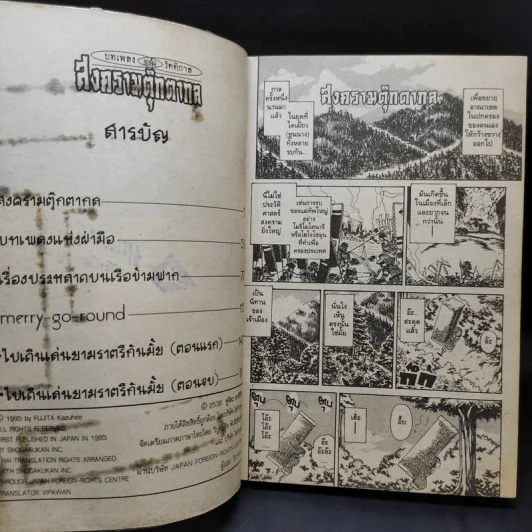 บทเพลง
รัตติกาล
สงครามตุ๊กตากล
สารบัญ
สงครามตุ๊กตากล
บทเพลงแห่งฝ่ามือ
เรื่องประหลาดบนเรือข้ามฟาก
merry-go-round
ไปเดินเล่นยามราตรีกันมั้ย (ตอนแรก)
ไปเดินเล่นยามราตรีกันมั้ย (ตอนจบ)
© 1995 by FUJITA Kazuhiro
ALL RIGHTS RESERVED
FIRST PUBLISHED IN JAPAN IN 1995
BY SHOGAKUKAN INC.
THAI TRANSLATION RIGHTS ARRANGED
WITH SHOGAKUKAN INC.
THROUGH JAPAN FOREIGN-RIGHTS CENTRE
TRANSLATOR VIPAWAN
© 2538
ผ่านบริษัท JAPAN FOREIGN-RIGHTS
สงครามตุ๊กตากล
กาล
ครั้งหนึ่ง
นานมา
แล้ว
ในยุคที่
ไดเมียว
(ขุนนาง)
ทั้งหลาย
รบกัน...
เพื่อขยาย
อาณาเขต
ในปกครอง
ของตนเอง
ให้กว้างขวาง
ออกไป
นี่ไม่ใช่
ประวัติ
ศาสตร์
สงคราม
ยิ่งใหญ่
เช่นการรบ
ของแม่ทัพใหญ่
อย่าง
ที่ทำเพื่อ
ครองประเทศ
มันเกิดขึ้น
ในเมืองที่เล็ก
และยากจน
กว่านั้น
เป็น
นิทาน
ของ
เจ้าเมือง
นั่นไง
เห็น
ตรงนั้น
ใช่มั้ย
อ๊ะ
อ๊ะ
สะดุด
แล้ว